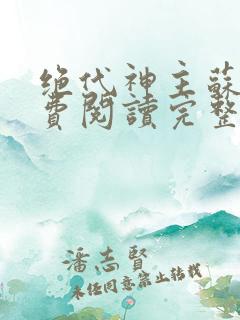 绝代神主蘇
費閱讀完整
潘志賢
未任同意禁止转载